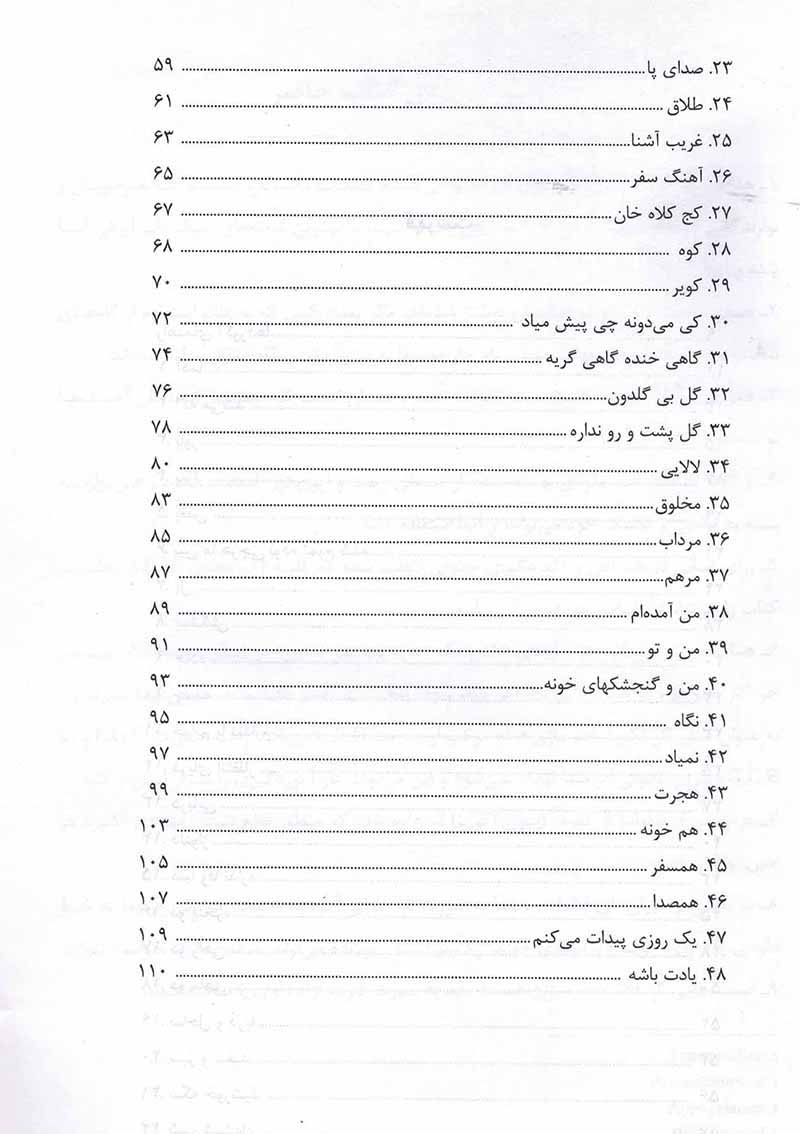 ۲۳. صدای پا ........ ۵۹
۲۴. طلاق ........ ۶۱
۲۵. غریب آشنا ........ ۶۳
۲۶. آهنگ سفر ........ ۶۵
۲۷. کج کلاه خان ........ ۶۷
۲۸. کوه ........ ۶۸
۲۹. کویر ........ ۷۰
۳۰. کی می‌دونه چی پیش میاد ........ ۷۲
۳۱. گاهی خنده گاهی گریه ........ ۷۴
۳۲. گل بی گلدون ........ ۷۶
۳۳. گل پشت و رو نداره ........ ۷۸
۳۴. لالایی ........ ۸۰
۳۵. مخلوق ........ ۸۳
۳۶. مرداب ........ ۸۵
۳۷. مرهم ........ ۸۷
۳۸. من آمده‌ام ........ ۸۹
۳۹. من و تو ........ ۹۱
۴۰. من و گنجشکهای خونه ........ ۹۳
۴۱. نگاه ........ ۹۵
۴۲. نمیاد ........ ۹۷
۴۳. هجرت ........ ۹۹
۴۴. هم خونه ........ ۱۰۳
۴۵. همسفر ........ ۱۰۵
۴۶. همصدا ........ ۱۰۷
۴۷. یک روزی پیدات می‌کنم ........ ۱۰۹
۴۸. یادت باشه ........ ۱۱۰